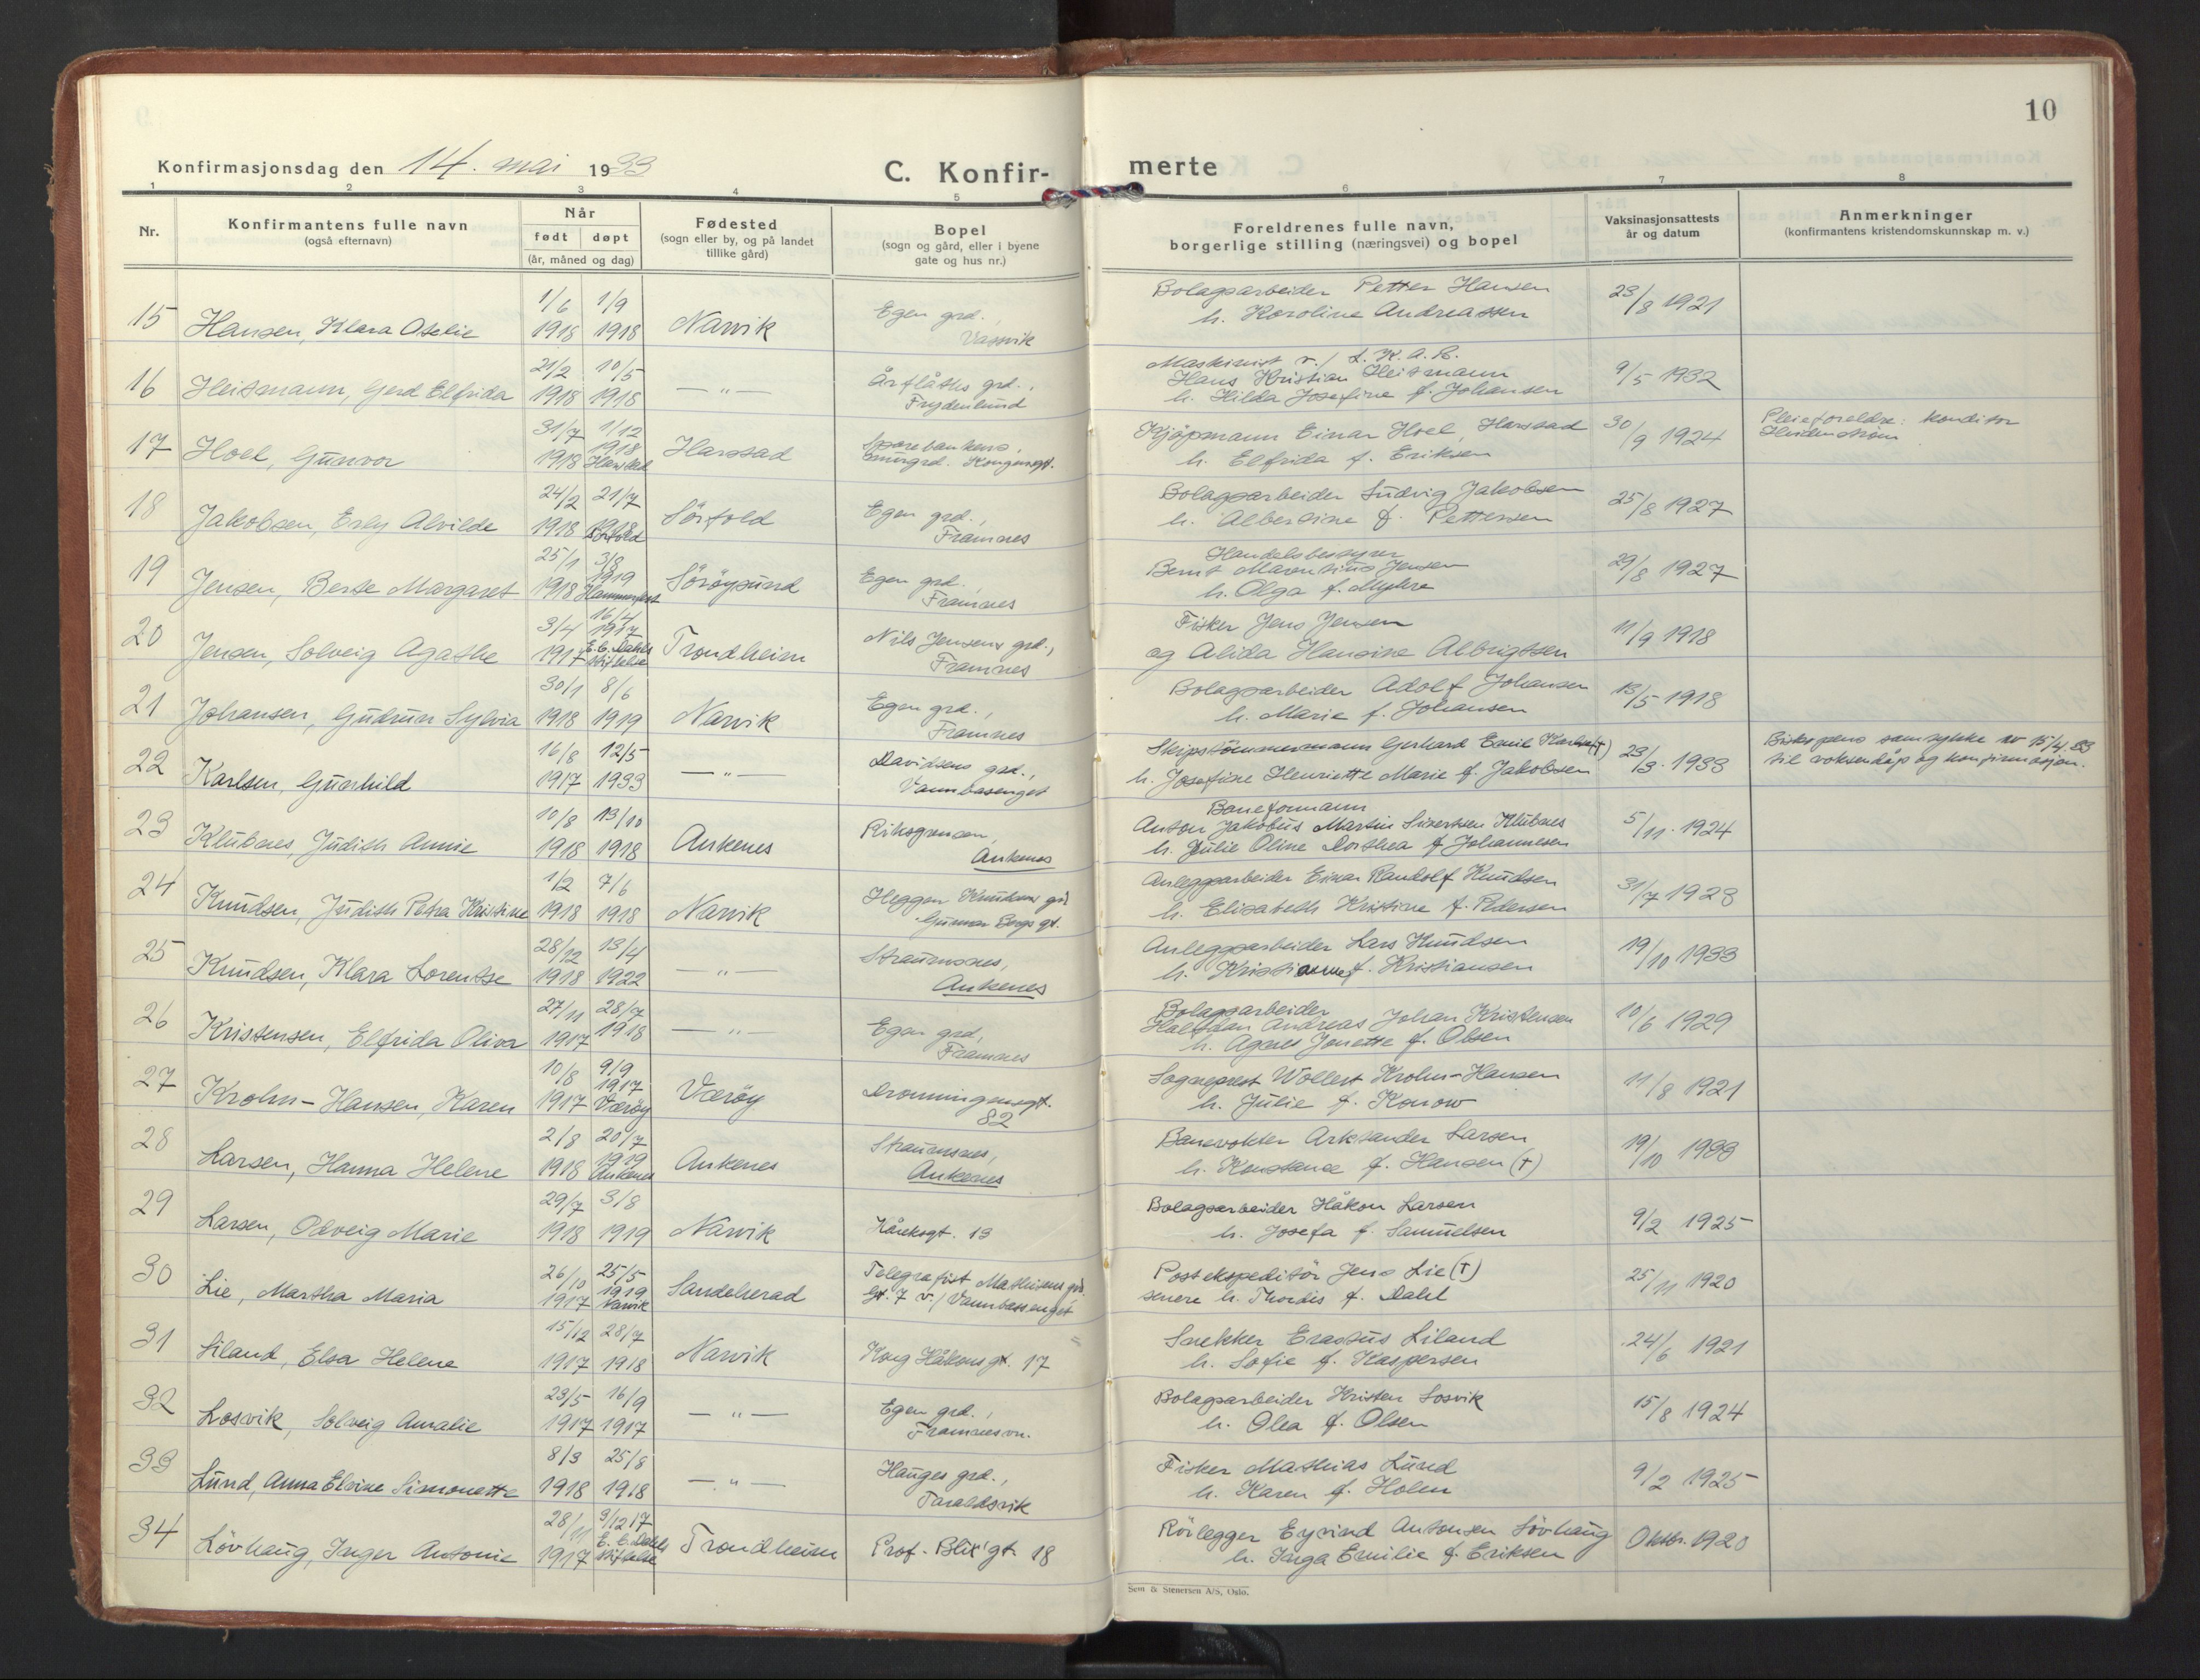 10
Konfirmasjonsdag den 14. mai 1933
C. Konfir-
merte
1 2 3 4 5 6 7 8
Nr.
Konfirmantens fulle navn
(også efternavn)
Når
født døpt
(år, måned og dag)
Fødested
(sogn eller by, og på landet
tillike gård)
Bopel
(sogn og gård, eller i byene
gate og hus nr.)
Foreldrenes fulle navn,
borgerlige stilling (næringsvei) og bopel
Vaksinasjonsattests
år og datum
Anmerkninger
(konfirmantens kristendomskunnskap m. v.)
15 Hansen, Klara Otelie
1/6 1918
1/9 1918
Narvik
Egen grd.,
Vassvik
Bolagsarbeider Petter Hansen
h. Karoline Andreassen
23/8 1921
16 Heitmann, Gerd Elfrida
21/2 1918
10/5 1918
— " —
Årflåths grd.,
Frydenlund
Maskinist v./ L.K.A.B.
Hans Kristian Heitmann
h. Hilda Josefine f. Johansen
9/5 1932
17 Hoel, Gunvor
31/7 1918
1/12 1918
Harstad
Harstad
Sparebankens
murgrd. Kongensgt.
Kjöpmann Einar Hoel, Harstad
h. Elfrida f. Eriksen
30/9 1924
Pleieforeldre: konditor
Heidenstrøm
18 Jakobsen, Esly Alvilde
24/2 1918
21/7 1918
Sörfold
Sörfold
Egen grd.,
Framnes
Bolagsarbeider Ludvig Jakobsen
h. Albertine f. Pettersen
25/8 1927
19 Jensen, Berte Margaret
25/1 1918
3/8 1919
Hammerfest
Söröysund
Egen grd.
Framnes
Handelsbestyrer
Bernt Marentius Jensen
h. Olga f. Myhre
29/8 1927
20 Jensen, Solveig Agathe
3/4 1917
16/4 1917
E.C. Dahls
stiftelse
Trondheim
Nils Jensens grd.,
Framnes
Fisker Jens Jensen
og Alida Hansine Albrigtsen
11/9 1918
21 Johansen, Gudrun Sylvia
30/1 1918
8/6 1919
Narvik
Egen grd.,
Framnes
Bolagsarbeider Adolf Johansen
h. Marie f. Johansen
13/5 1918
22 Karlsen, Gunhild
16/8 1917
12/5 1933
— " —
Davidsens grd.,
Vannbasenget
Skipstömmermann Gerhard Emil Karlsen (†)
h. Josefine Henriette Marie f. Jakobsen
23/3 1933
Biskopens samtykke av 15/4.33
til voksendåp og konfirmasjon.
23 Klubnes, Judith Annie
10/8 1918
13/10 1918
Ankenes
Riksgrensen,
Ankenes
Baneformann
Anton Jakobus Martin Sivertsen Klubnes
h. Julie Oline Dorthea f. Johannesen
5/11. 1924
24 Knudsen, Judith Petra Kristine
1/2 1918
7/6 1918
Narvik
Heggen Knudsens grd
Gunnar Bergs gt.
Anleggsarbeider Einar Randolf Knudsen
h. Elisabeth Kristine f. Pedersen
31/7 1923
25 Knudsen, Klara Lorentse
28/12 1918
13/4 1922
— " —
Straumsnes,
Ankenes
Anleggsarbeider Lars Knudsen
h. Kristianne f. Kristiansen
19/10 1933
26 Kristensen, Elfrida Oliva
27/11 1917
28/7 1918
— " —
Egen grd,
Framnes
Bolagsarbeider
Halfdan Andreas Johan Kristensen
h. Agnes Jonette f. Olsen
10/6 1929
27 Krohn-Hansen, Karen
10/8 1917
9/9 1917
Væröy
Væröy
Dronningensgt.
82
Sogneprest Wollert Krohn-Hansen
h. Julie f. Konow
11/8 1921
28 Larsen, Hanna Helene
2/8 1918
20/7 1919
Ankenes
Ankenes
Straumsnes,
Ankenes
Banevokter Arksander Larsen
h. Konstanse f. Hansen (†)
19/10 1933
29 Larsen, Odveig Marie
29/7 1918
3/8 1919
Narvik
Håreksgt. 13
Bolagsarbeider Håkon Larsen
h. Josefa f. Samuelsen
9/2 1925
30 Lie, Martha Maria
26/10 1917
25/5 1919
Narvik
Sandeherad
Telegrafist Mathisens grd.
Gt. 7 v./ Vannbassenget
Postekspeditör Jens Lie (†)
senere h. Thordis f. Dahl
25/11 1920
31 Liland, Elsa Helene
15/12 1917
28/7 1918
Narvik
Kong Håkons gt. 17
Snekker Erastus Liland
h. Sofie f. Kaspersen
24/6 1921
32 Losvik, Solveig Amalie
23/5 1917
16/9 1917
— " —
Egen grd.,
Framnesvn.
Bolagsarbeider Kristen Losvik
h. Olea f. Olsen
15/8 1924
33 Lund, Anna Elvine Simonette
8/3 1918
25/8 1918
— " —
Hauges grd.,
Taraldsvik
Fisker Mathias Lund
h. Karen f. Holm
9/2 1925
34 Lövhaug, Inger Antonie
28/11 1917
9/12 17
E. C. Dahls
stiftelse
Trondheim
Prof. Blix' gt. 18
Rörlegger Eyvind Antonsen Lövhaug
h. Inga Emilie f. Eriksen
Oktbr. 1920
Sem & Stenersen A/S, Oslo.